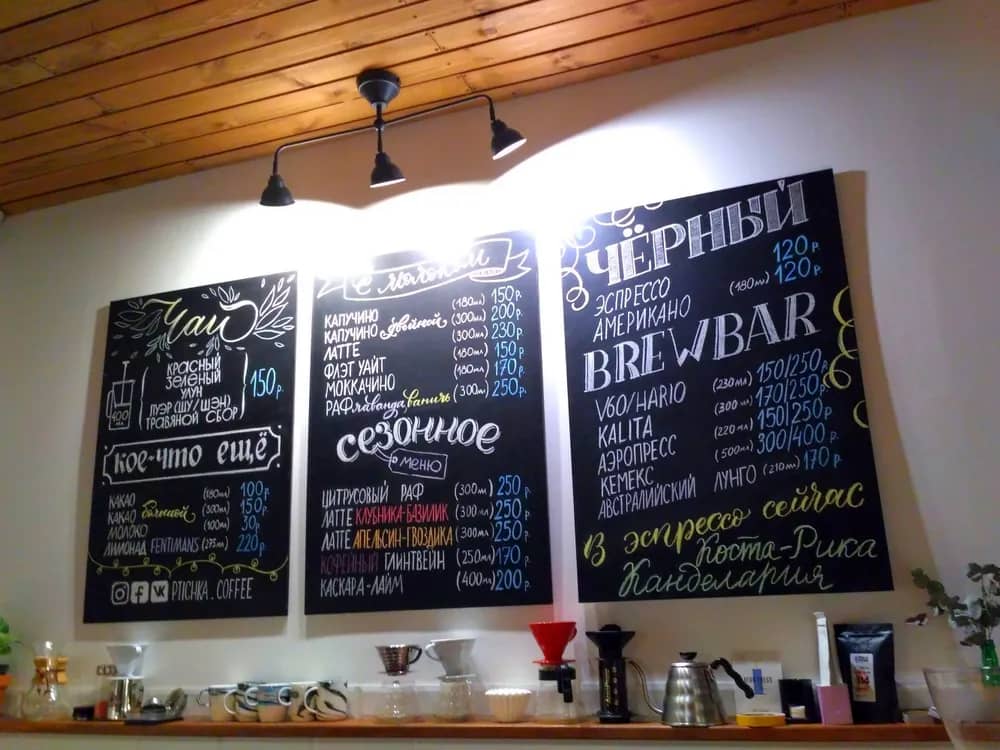 Чай
400 мл
КРАСНЫЙ
ЗЕЛЁНЫЙ
УЛУН
ПУЭР (ШУ/ШЭН)
ТРАВЯНОЙ СБОР
150 р.
КОЕ-ЧТО ЕЩЁ
КАКАО (180мл) 100 р.
КАКАО большой (300мл) 150 р.
МОЛОКО (100мл) 30 р.
ЛИМОНАД FENTIMANS (275мл) 220 р.
PTICHKA.COFFEE
с молоком
КАПУЧИНО (180мл) 150 р.
КАПУЧИНО двойной (300мл) 200 р.
ЛАТТЕ (300мл) 230 р.
ФЛЭТ УАЙТ (180мл) 150 р.
МОККАЧИНО (180мл) 170 р.
РАФ лаванда ваниль (300мл) 250 р.
сезонное
меню
ЦИТРУСОВЫЙ РАФ (300мл) 250 р.
ЛАТТЕ КЛУБНИКА-БАЗИЛИК (300мл) 250 р.
ЛАТТЕ АПЕЛЬСИН-ГВОЗДИКА (300мл) 250 р.
КОФЕЙНЫЙ ГЛИНТВЕЙН (250мл) 170 р.
КАСКАРА-ЛАЙМ (400мл) 200 р.
ЧЁРНЫЙ
ЭСПРЕССО 120 р.
АМЕРИКАНО (180мл) 120 р.
BREWBAR
V60/HARIO (230мл) 150/250 р.
KALITA (300мл) 170/250 р.
АЭРОПРЕСС (220мл) 150/250 р.
КЕМЕКС (500мл) 300/400 р.
АВСТРАЛИЙСКИЙ ЛУНГО (210мл) 170 р.
В эспрессо сейчас
Коста-Рика
Канделария